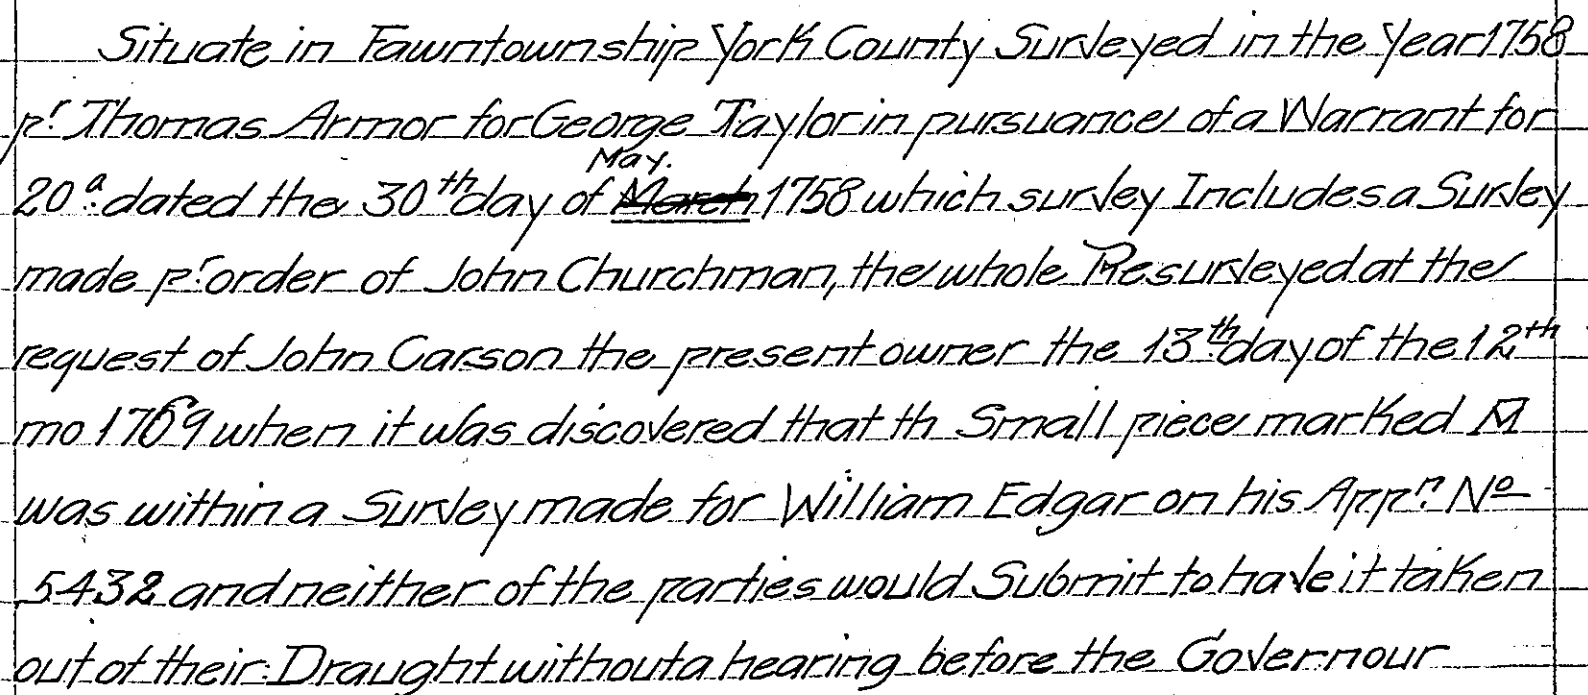 Situate in Fawntownship York County Surveyed in the Year 1758
pr. Thomas Armor for George Taylor in pursuance of a Warrant for
May.
20a. dated the 30th day of March 1758 which survey Includes a Survey
made pr. order of John Churchman, the whole Resurveyed at the
request of John Carson the present owner the 13th day of the 12th
mo 1769 when it was discovered that th Small piece marked M
was within a Survey made for William Edgar on his Appn. No
5432 and neither of the parties would Submit to have it taken
out of their Draught without a hearing before the Governour